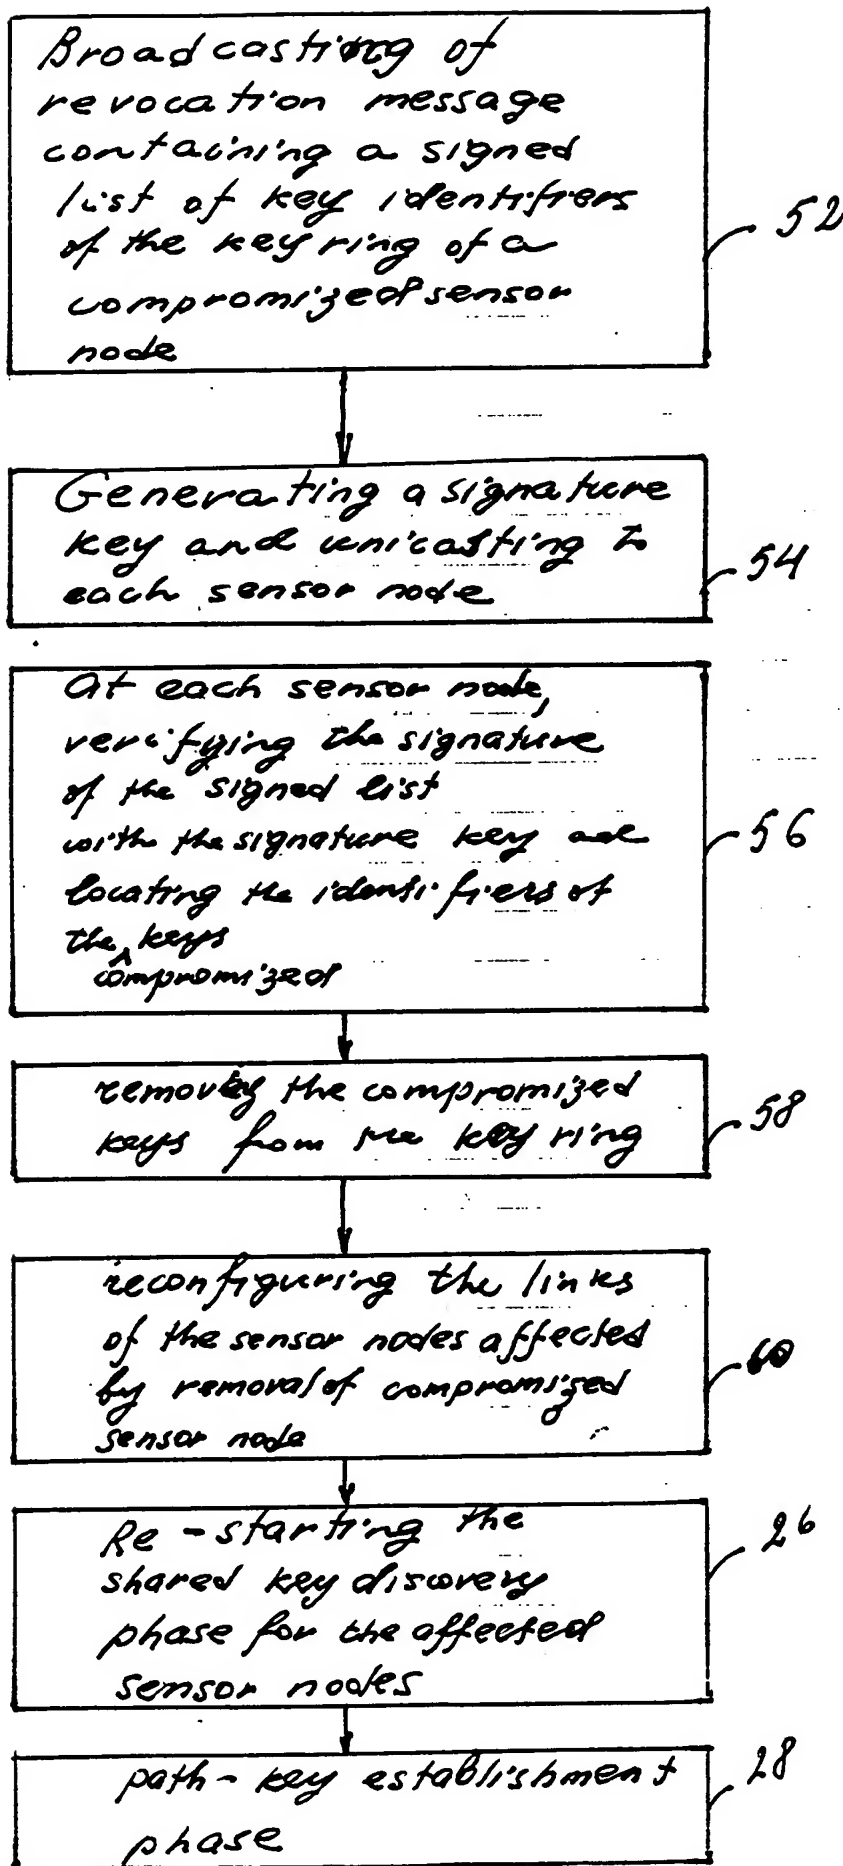 Broadcasting of
revocation message
containing a signed
list of key identifiers
of the key ring of a
compromized sensor
node
52
Generating a signature
key and unicasting to
each sensor node
54
At each sensor node,
verifying the signature
of the signed list
with the signature key and
locating the identifiers of
the ^ keys
compromized
56
removing the compromized
keys from the key ring
58
reconfiguring the links
of the sensor nodes affected
by removal of compromized
sensor node
60
Re-starting the
shared key discovery
phase for the affected
sensor nodes
26
path-key establishment
phase
28